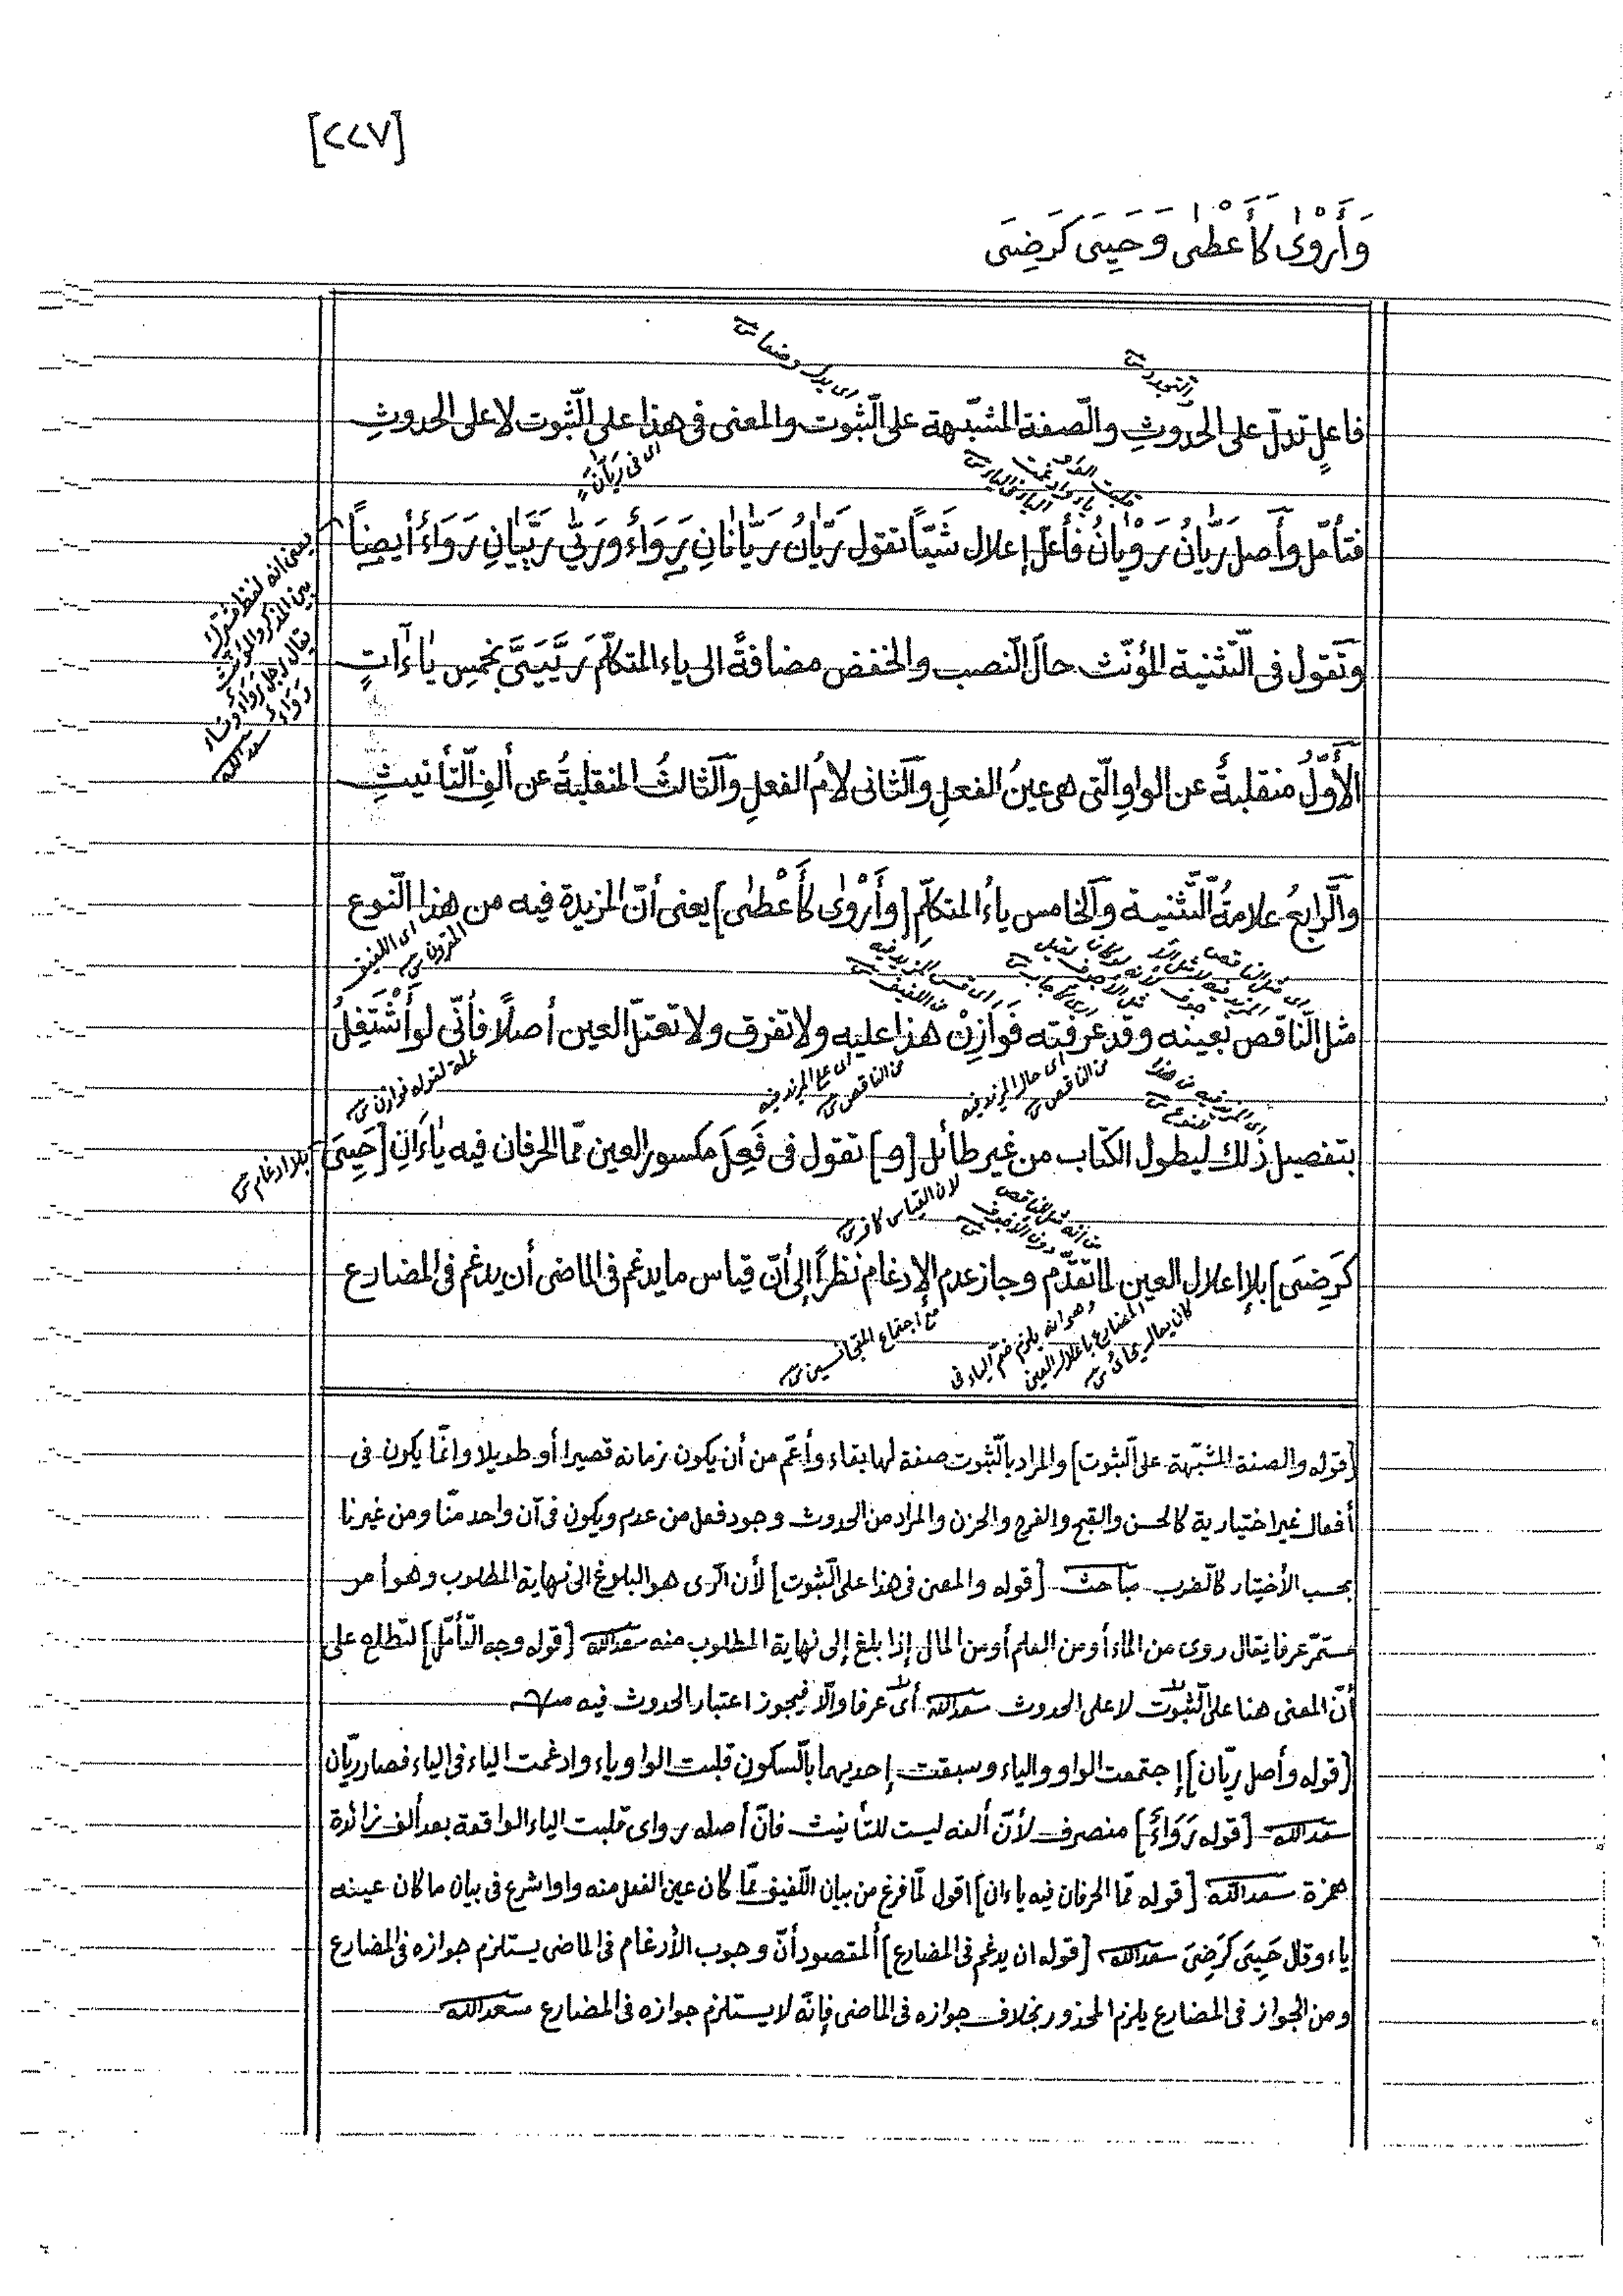 [٢٢٧]
وَأَرْوٰى كَأَعْطٰى وَحَيِيَ كَرَضِيَ
والتجدد
اى يدل وضعا
فاعلٍ تدلّ على الحدوثِ والصّفة المشبّهة على الثّبوت والمعنى فى هذا على الثّبوت لا على الحدوثِ
اى فى ريّان
فتأمّل وأصل رَيّٰانُ رَوْيٰانُ فأعلّ إعلال شَيّاً تقول رَيّٰانُ رَيّٰانٰانِ رِوَاءٌ ورَيّٰى رَيَّيٰانِ رِوَاءٌ أيضاً
يعنى انه لفظ مشترك
بين المذكر والمؤنث
يقال رجل رواء ونساء
رواء سعد الله
وتقول فى التّثنية المؤنّث حالَ النّصب والخفض مضافةً الى ياء المتكلّم رَيَّيَىَّ بخمسِ يٰاءٰاتٍ
الأوّلُ منقلبةٌ عن الواوِ الّتى هى عينُ الفعلِ والثّانى لامُ الفعلِ والثّالثُ المنقلبةُ عن ألفِ التّأنيثِ
والرّابعُ علامةُ التّثنيـة والخامس ياءُ المتكلّم [وأَرْوٰى كأَعْطٰى] يعنى أنّ المزيدة فيه من هذا النّوع
اى اللفيف
المقرون
مثل النّاقص بعينه وقد عرفته فَوازِنْ هذا عليه ولا تفرق ولا تعتلّ العين أصلاً فأنّى لو أَشْتَغِلُ
اى حال المزيد فيه
من الناقص
اى على المزيد فيه
من الناقص
علة لقوله فوازن
بتفصيل ذٰلك ليطول الكتاب من غير طائل [و] تقول فى فَعِلَ مكسور العين ممّا الحرفان فيه يٰاءَانِ [حَيِىَ
بلا ادغام
لان القياس كافر
كَرَضِىَ] بلا إعلال العين لما تقدّم وجاز عدم الإدغام نظراً إلى أنّ قياس ما يدغم فى الماضى أن يدغم فى المضارع
وهو انه يلزم ضمّ الياء فى
المضارع باعلال العين
مع اجتماع المتجانسين
[قوله والصفة المشبّهة على الثّبوت] والمراد بالثّبوت صفة لها بقاء وأعمّ من أن يكون زمانه قصيرا أو طويلا وانّما يكون فى
أفعال غير اختيارية كالحسن والقبح والفرح والحزن والمراد من الحدوث وجود فعل من عدم ويكون فى آن واحد منّا ومن غيرنا
بحسب الأختيار كالضرب مباحث [قوله والمعنى فى هذا على الثّبوت] لأن الرّى هو البلوغ الى نهاية المطلوب وهو أمر
مستمرّ عرفا يقال روى من الماء أو من العلم أو من المال إذا بلغ إلى نهاية المطلوب منه سعد الله [قوله وجه التّأمّل] لتطلع على
أنّ المعنى هنا على الثّبوت لا على الحدوث سعد الله أى عرفا والّا فيجوز اعتبار الحدوث فيه
[قوله وأصل ريّان] إجتمعت الواو والياء وسبقت إحديهما بالسّكون قلبت الواو ياء وادغمت الياء فى الياء فصار ريّان
سعد الله [قوله رَوَاءٌ] منصرف لأنّ ألفه ليست للتأنيث فانّ أصله رواى قلبت الياء الواقعة بعد ألف زائدة
همزة سعد الله [قوله ممّا الحرفان فيه ياءان] اقول لمّا فرغ من بيان اللّفيف ممّا كان عين الفعل منه واوا شرع فى بيان ما كان عينه
ياء وقال حَيِىَ كَرَضِىَ سعد الله [قوله ان يدغم فى المضارع] ألمقصود أنّ وجوب الأدغام فى الماضى يستلزم جوازه فى المضارع
ومن الجواز فى المضارع يلزم المحذور بخلاف جوازه فى الماضى فإنّه لا يستلزم جوازه فى المضارع سعد الله